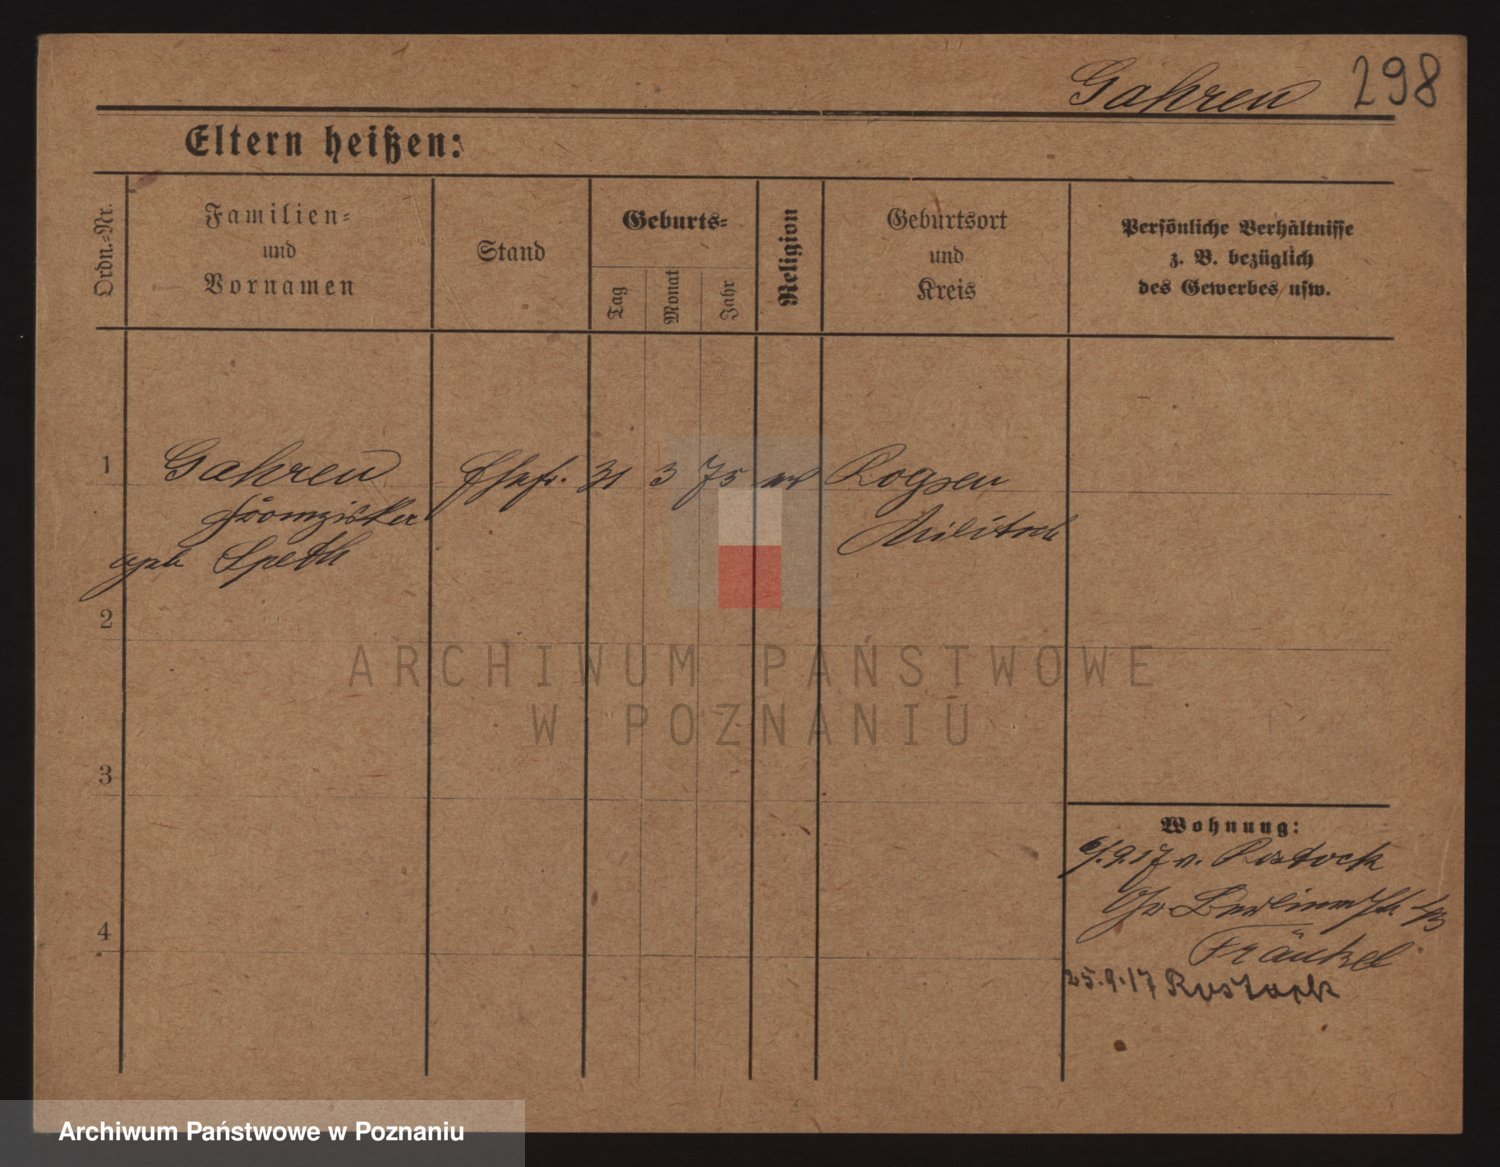 Gahren 298
Eltern heißen:
Ordn.=Nr.
Familien=
und
Vornamen
Stand
Geburts=
Tag
Monat
Jahr
Religion
Geburtsort
und
Kreis
Persönliche Verhältnisse
z. B. bezüglich
des Gewerbes usw.
1 Gahren Ehefr. 31 3 75 Rogsen
Franziska Militsch
geb Speth
2
ARCHIWUM PAŃSTWOWE
W POZNANIU
3
Wohnung:
6/.9.17 v. Rostock
Gr. Berlinerstr
4
Fränkel
25.9.17 Rostock
Archiwum Państwowe w Poznaniu